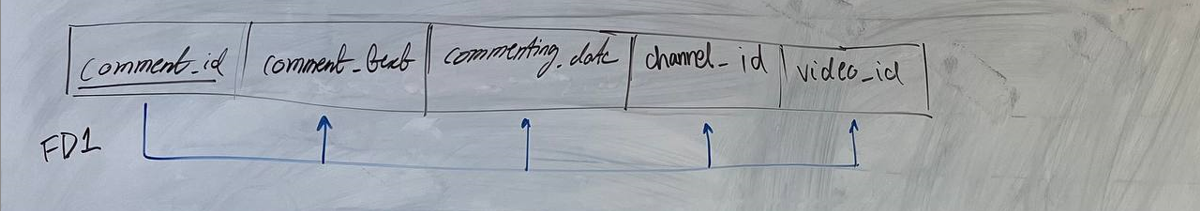 comment_id comment_text commenting_date channel_id video_id
FD1